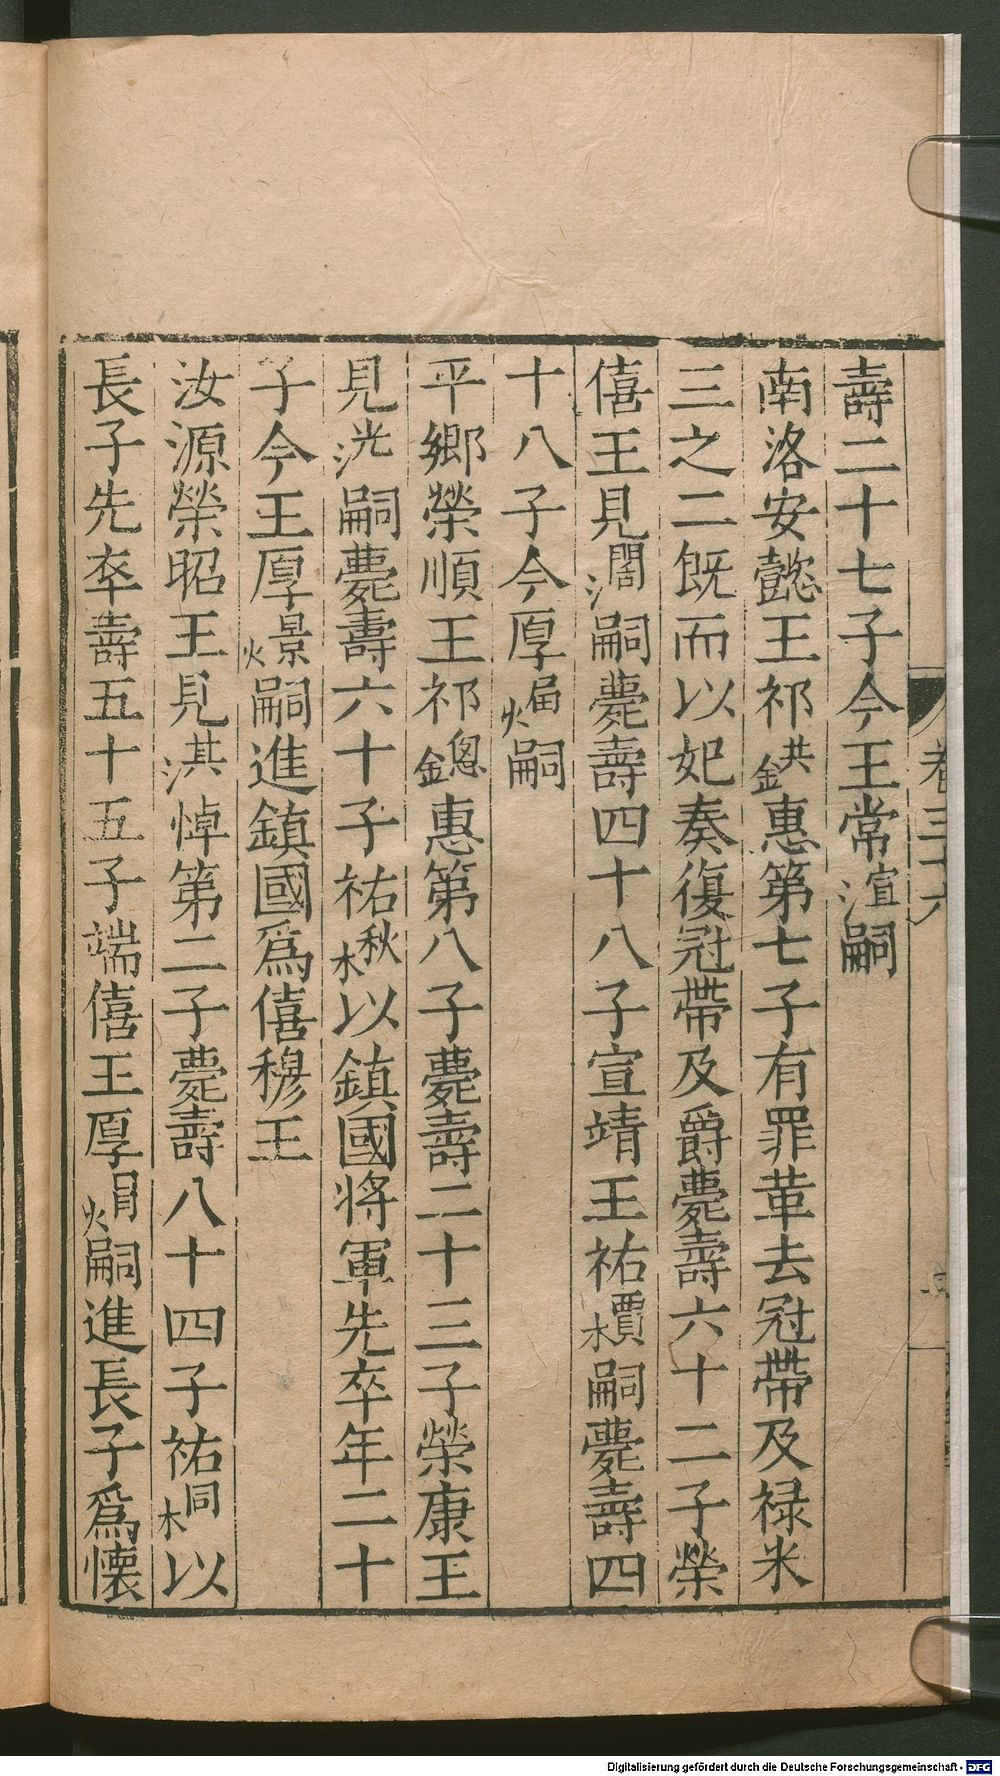 卷三十六
壽二十七子今王常渲嗣
南洛安懿王祁鉷惠第七子有罪革去冠帶及禄米
三之二既而以妃奏復冠帶及爵薨壽六十二子榮
僖王見⿰氵閣嗣薨壽四十八子宣靖王祐檟嗣薨壽四
十八子今厚⿰火届嗣
平鄉榮順王祁鏓惠第八子薨壽二十三子榮康王
見洸嗣薨壽六十子祐楸以鎮國将軍先卒年二十
子今王厚燝嗣進鎮國爲僖穆王
汝源榮昭王見淇悼第二子薨壽八十四子祐桐以
長子先卒壽五十五子端僖王厚⿰火冐嗣進長子爲懷
Digitalisierung gefördert durch die Deutsche Forschungsgemeinschaft - DFG